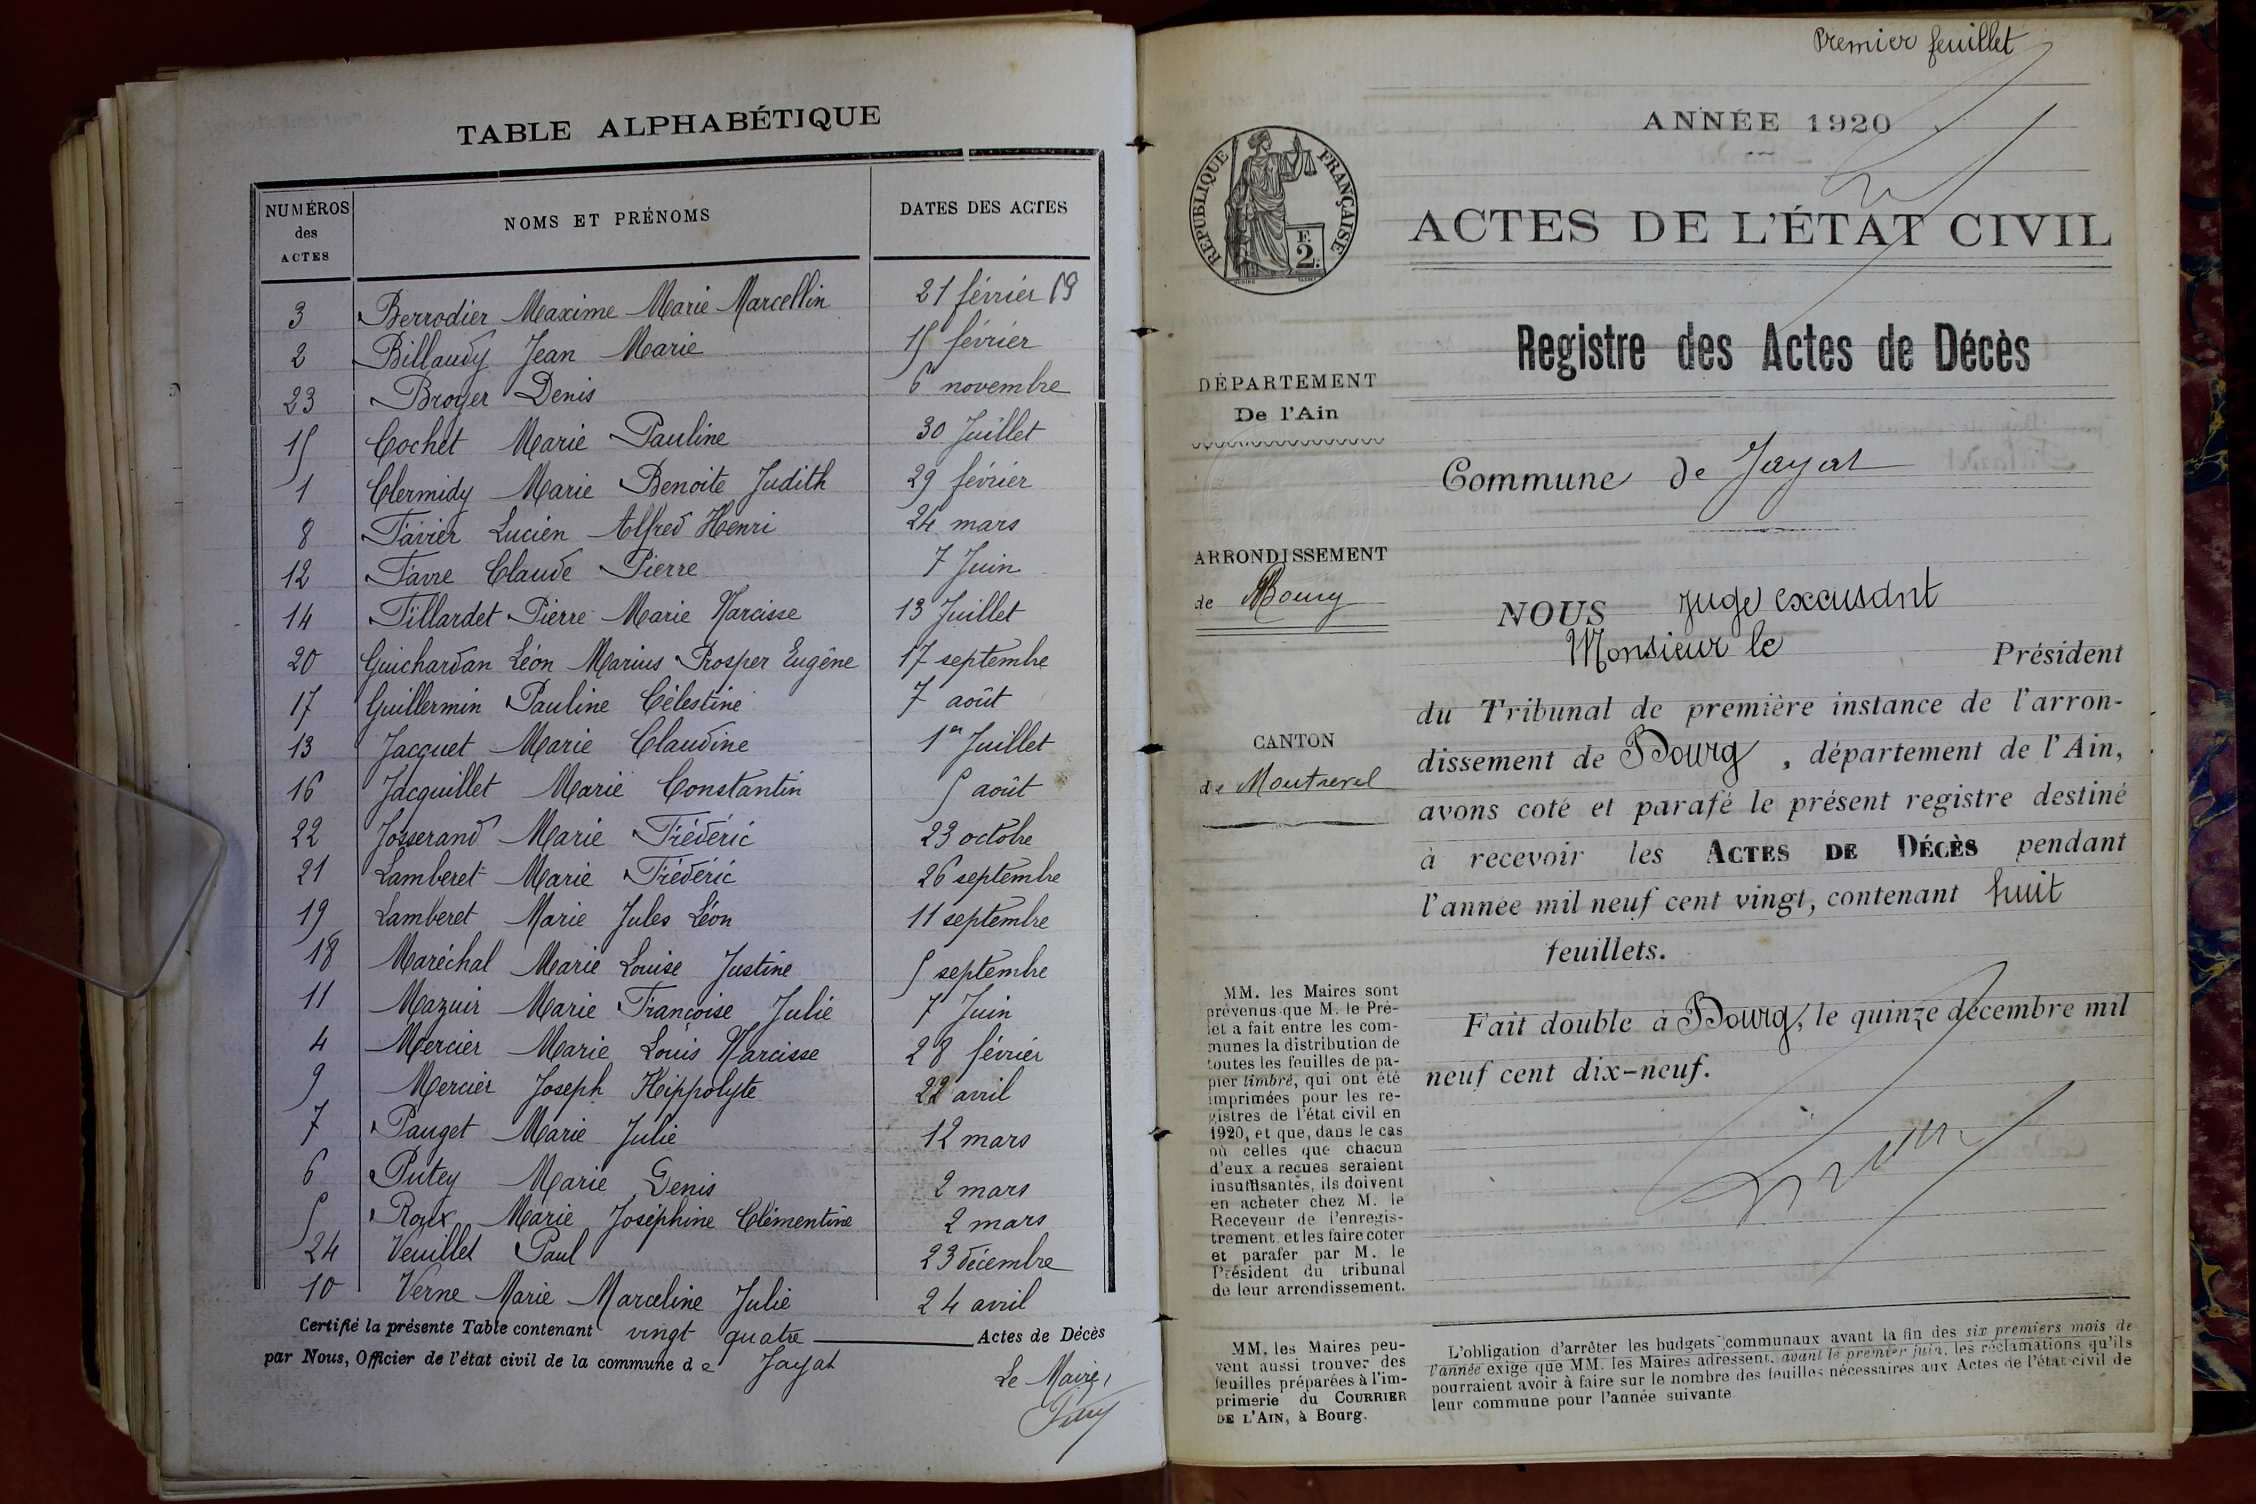 TABLE ALPHABÉTIQUE
NUMÉROS des ACTES NOMS ET PRÉNOMS DATES DES ACTES
3 Berrodier Maxime Marie Marcellin 21 février 19
2 Billaudy Jean Marie 15 février
23 Broyer Denis 6 novembre
15 Cochet Marie Pauline 30 Juillet
1 Clermidy Marie Benoite Judith 29 février
8 Favier Lucien Alfred Henri 24 mars
12 Favre Claude Pierre 7 Juin
14 Fillardet Pierre Marie Narcisse 13 Juillet
20 Guichardan Léon Marius Prosper Eugène 17 septembre
17 Guillermin Pauline Célestine 7 août
13 Jacquet Marie Claudine 1er Juillet
16 Jacquillet Marie Constantin 5 août
22 Josserand Marie Frédéric 23 octobre
21 Lamberet Marie Frédéric 26 septembre
19 Lamberet Marie Jules Léon 11 septembre
18 Maréchal Marie Louise Justine 5 septembre
11 Mazuir Marie Françoise Julie 7 Juin
4 Mercier Marie Louis Narcisse 28 février
9 Mercier Joseph Hippolyte 22 avril
7 Pauget Marie Julie 12 mars
6 Putey Marie Denis 2 mars
5 Roux Marie Joséphine Clémentine 2 mars
24 Veuillet Paul 23 décembre
10 Verne Marie Marceline Julie 24 avril
Certifié la présente Table contenant vingt quatre Actes de Décès
par Nous, Officier de l'état civil de la commune de Jayat
Le Maire,
Premier feuillet
ANNÉE 1920
RÉPUBLIQUE FRANÇAISE
F. 2.
ACTES DE L'ÉTAT CIVIL
Registre des Actes de Décès
DÉPARTEMENT
De l'Ain
Commune de Jayat
ARRONDISSEMENT
de Bourg
CANTON
de Montrevel
NOUS Juge excusant
Monsieur le Président
du Tribunal de première instance de l'arron-
dissement de Bourg, département de l'Ain,
avons coté et parafé le présent registre destiné
à recevoir les ACTES DE DÉCÈS pendant
l'année mil neuf cent vingt, contenant huit
feuillets.
Fait double à Bourg, le quinze décembre mil
neuf cent dix-neuf.
MM. les Maires sont
prévenus que M. le Pré-
fet a fait entre les com-
munes la distribution de
toutes les feuilles de pa-
pier timbré, qui ont été
imprimées pour les re-
gistres de l'état civil en
1920, et que, dans le cas
où celles que chacun
d'eux a reçues seraient
insuffisantes, ils doivent
en acheter chez M. le
Receveur de l'enregis-
trement et les faire coter
et parafer par M. le
Président du tribunal
de leur arrondissement.
MM. les Maires peu-
vent aussi trouver des
feuilles préparées à l'im-
primerie du COURRIER
DE L'AIN, à Bourg.
L'obligation d'arrêter les budgets communaux avant la fin des six premiers mois de
l'année exige que MM. les Maires adressent, avant le premier juin, les réclamations qu'ils
pourraient avoir à faire sur le nombre des feuilles nécessaires aux Actes de l'état-civil de
leur commune pour l'année suivante.